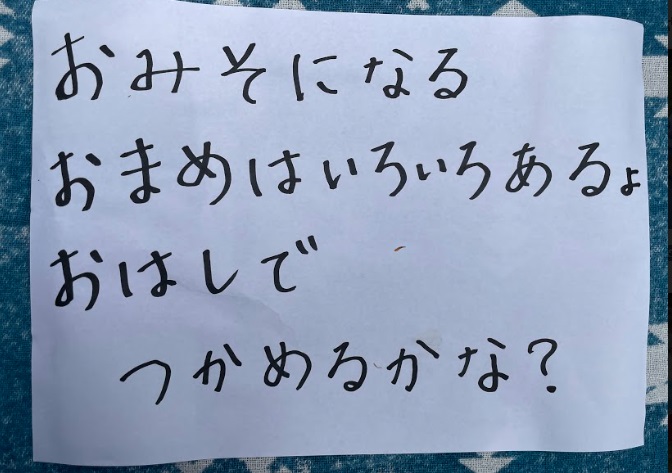 おみそになる
おまめはいろいろあるょ
おはしで
つかめるかな?